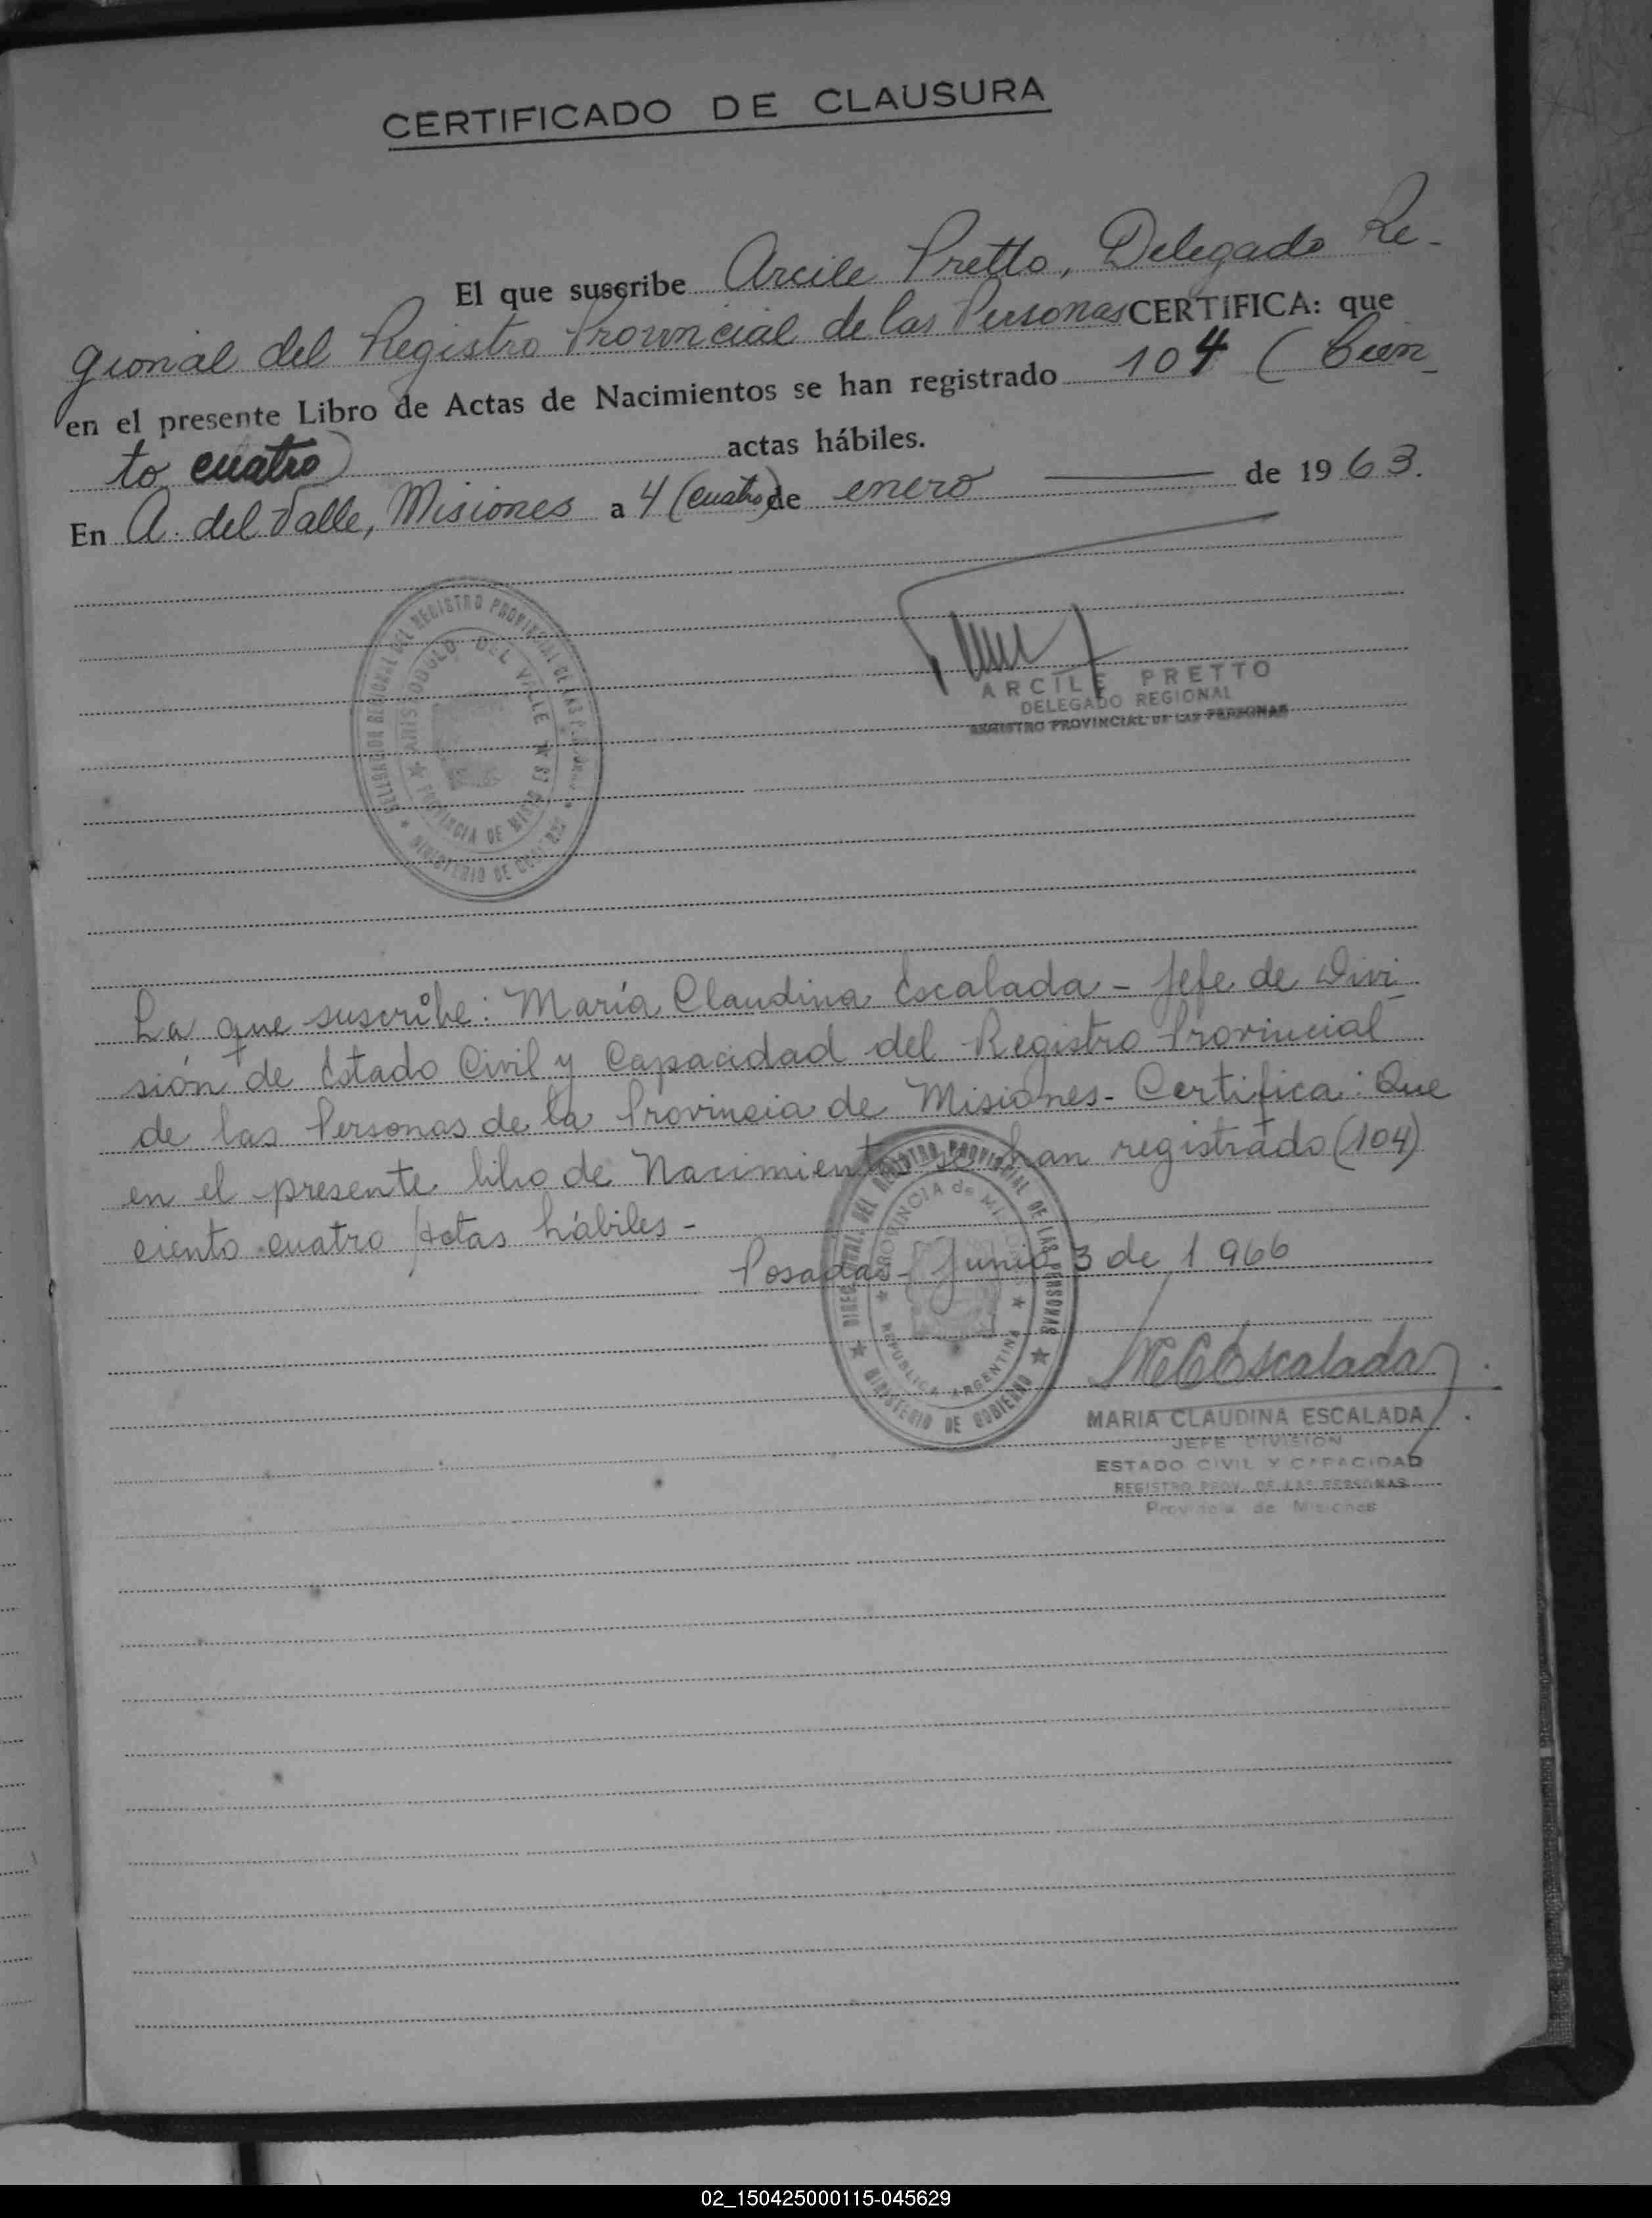 CERTIFICADO DE CLAUSURA
El que suscribe Arcile Pretto, Delegado Re-
gional del Registro Provincial de las Personas CERTIFICA: que
en el presente Libro de Actas de Nacimientos se han registrado 104 (Cien_
to cuatro) actas hábiles.
En A. del Valle, Misiones a 4 (cuatro) de enero de 1963.
REGIONAL DEL REGISTRO PROVINCIAL DE LAS
ARISTOBULO DEL VALLE
PROVINCIA DE MISIONES
MINISTERIO DE GOBIERNO
ARCILE PRETTO
DELEGADO REGIONAL
REGISTRO PROVINCIAL DE LAS PERSONAS
La que suscribe: María Claudina Escalada - Jefe de Divi_
sión de Estado Civil y Capacidad del Registro Provincial
de las Personas de la Provincia de Misiones - Certifica: Que
en el presente libro de Nacimientos se han registrado (104)
ciento cuatro Actas hábiles -
Posadas - Junio 3 de 1966
DEL REGISTRO PROVINCIAL DE LAS PERSONAS
PROVINCIA de MISIONES
REPUBLICA ARGENTINA
MINISTERIO DE GOBIERNO
MCEscalada
MARIA CLAUDINA ESCALADA
JEFE DIVISION
ESTADO CIVIL Y CAPACIDAD
REGISTRO PROV. DE LAS PERSONAS
Provincia de Misiones
02_150425000115-045629